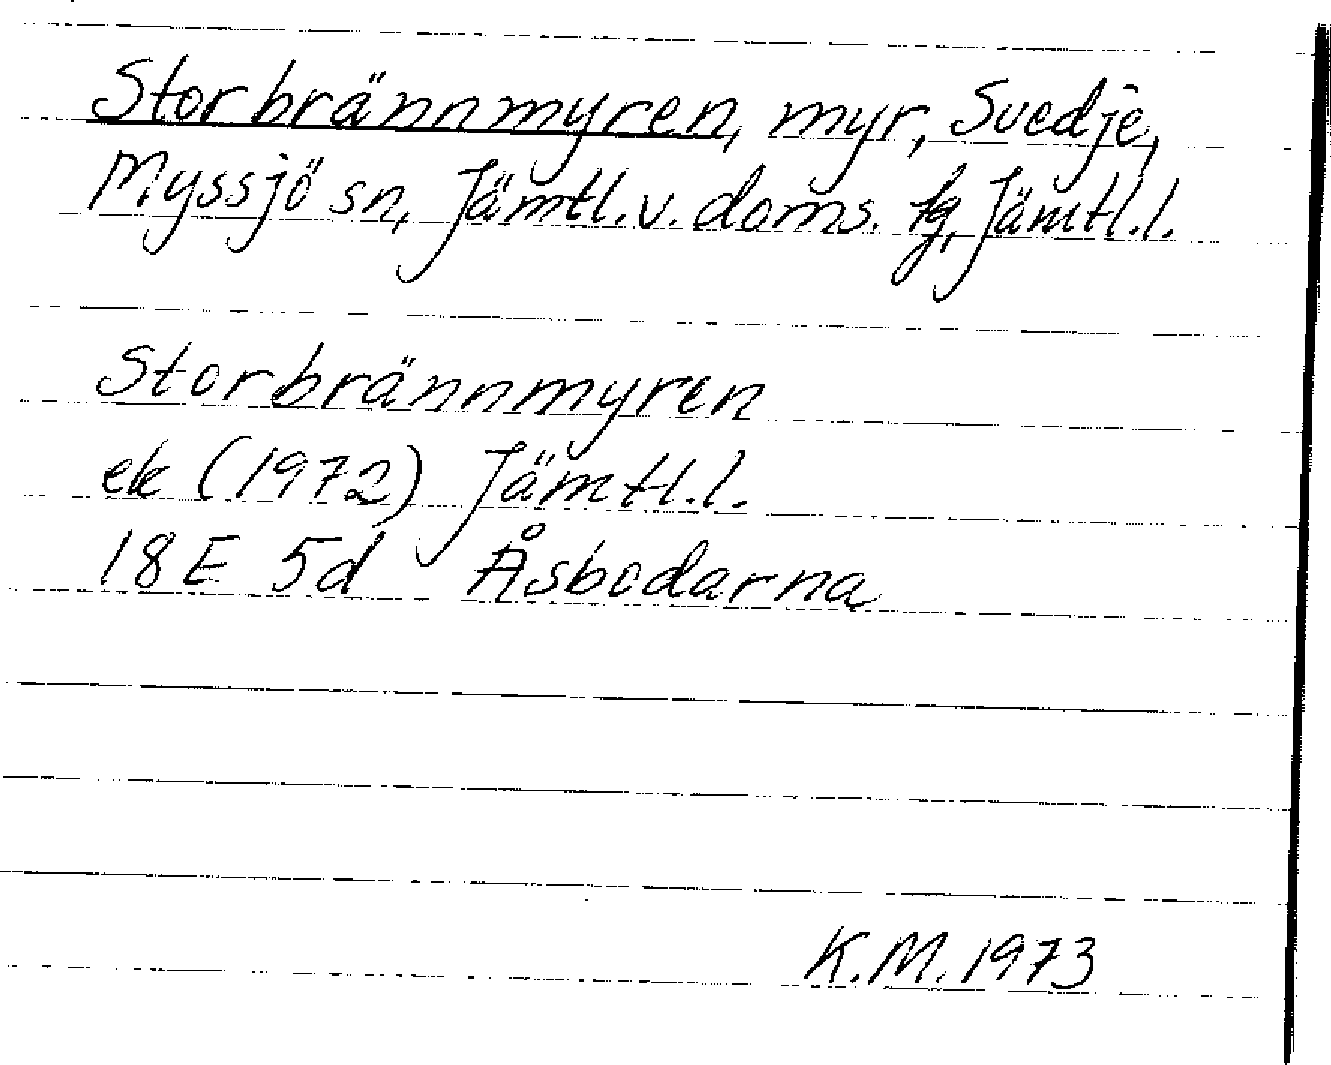 Storbrännmyren, myr, Svedje,
Myssjö sn, Jämtl.v. doms. fg, Jämtl.l.
Storbrännmyren
ek (1972) Jämtl.l.
18E 5d Åsbodarna
K.M. 1973